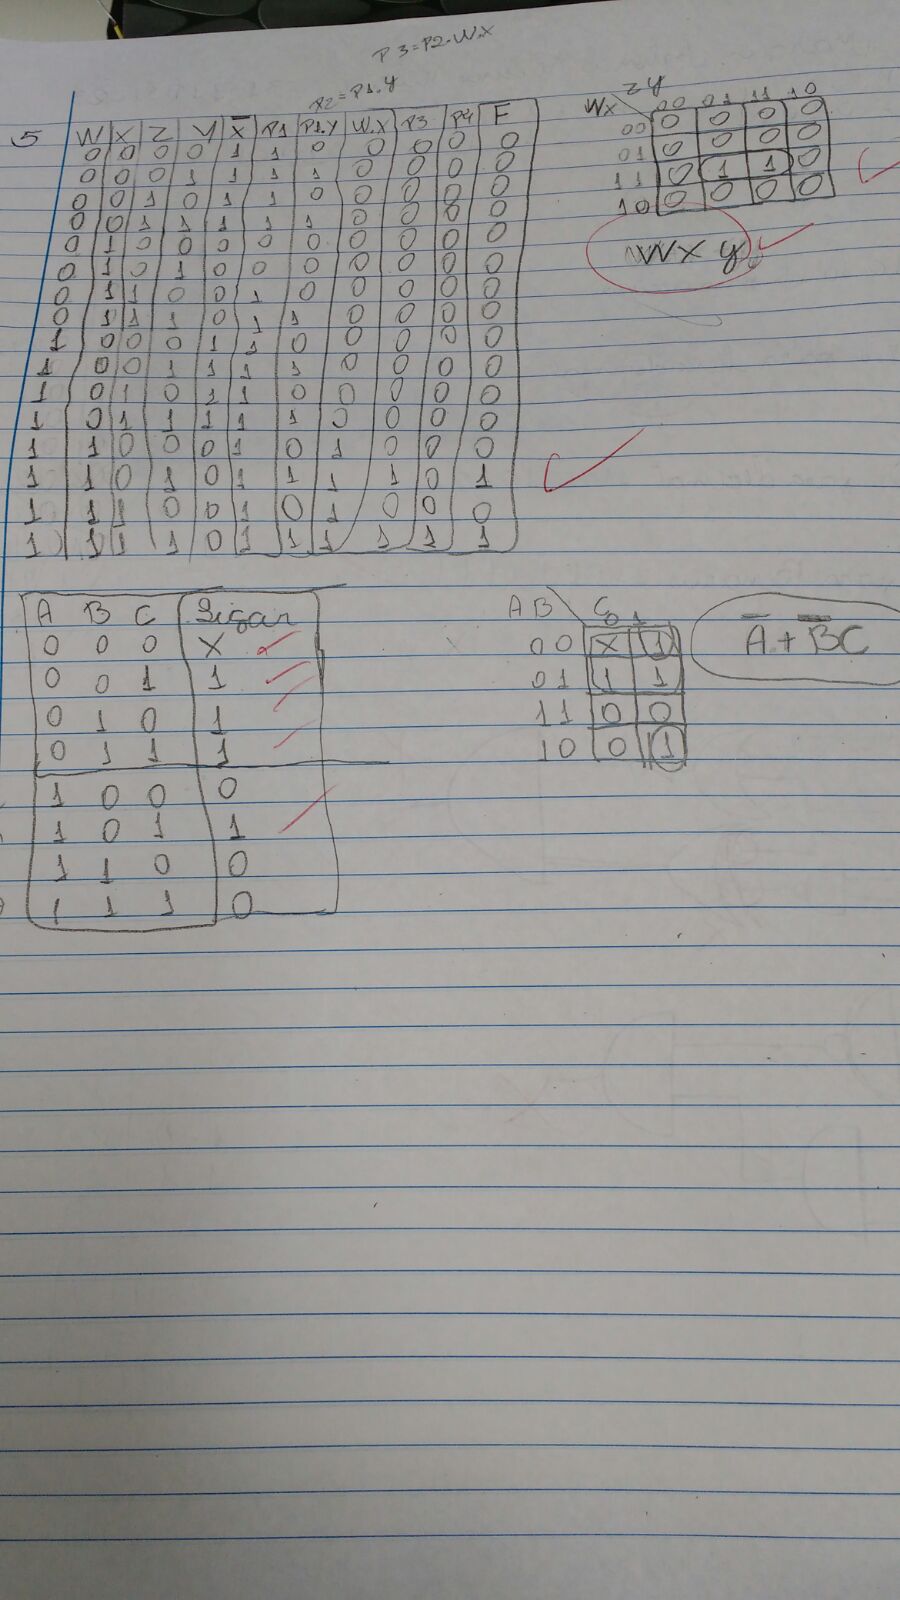 P3=P2.W.X
P2=P1.Y
5 W X Z Y X̅ P1 P1.Y W.X P3 P4 F
0 0 0 0 1 1 0 0 0 0 0
0 0 0 1 1 1 1 0 0 0 0
0 0 1 0 1 1 0 0 0 0 0
0 0 1 1 1 1 1 0 0 0 0
0 1 0 0 0 0 0 0 0 0 0
0 1 0 1 0 0 0 0 0 0 0
0 1 1 0 0 1 0 0 0 0 0
0 1 1 1 0 1 1 0 0 0 0
1 0 0 0 1 1 0 0 0 0 0
1 0 0 1 1 1 1 0 0 0 0
1 0 1 0 1 1 0 0 0 0 0
1 0 1 1 1 1 1 0 0 0 0
1 1 0 0 0 1 0 1 0 0 0
1 1 0 1 0 1 1 1 1 0 1
1 1 1 0 0 1 0 1 0 0 0
1 1 1 1 0 1 1 1 1 1 1
ZY
WX 00 01 11 10
00 0 0 0 0
01 0 0 0 0
11 0 1 1 0
10 0 0 0 0
WXY
A B C Ligar
0 0 0 X
0 0 1 1
0 1 0 1
0 1 1 1
1 0 0 0
1 0 1 1
1 1 0 0
1 1 1 0
AB C
0 1
00 X 1
01 1 1
11 0 0
10 0 1
A̅ + B̅C